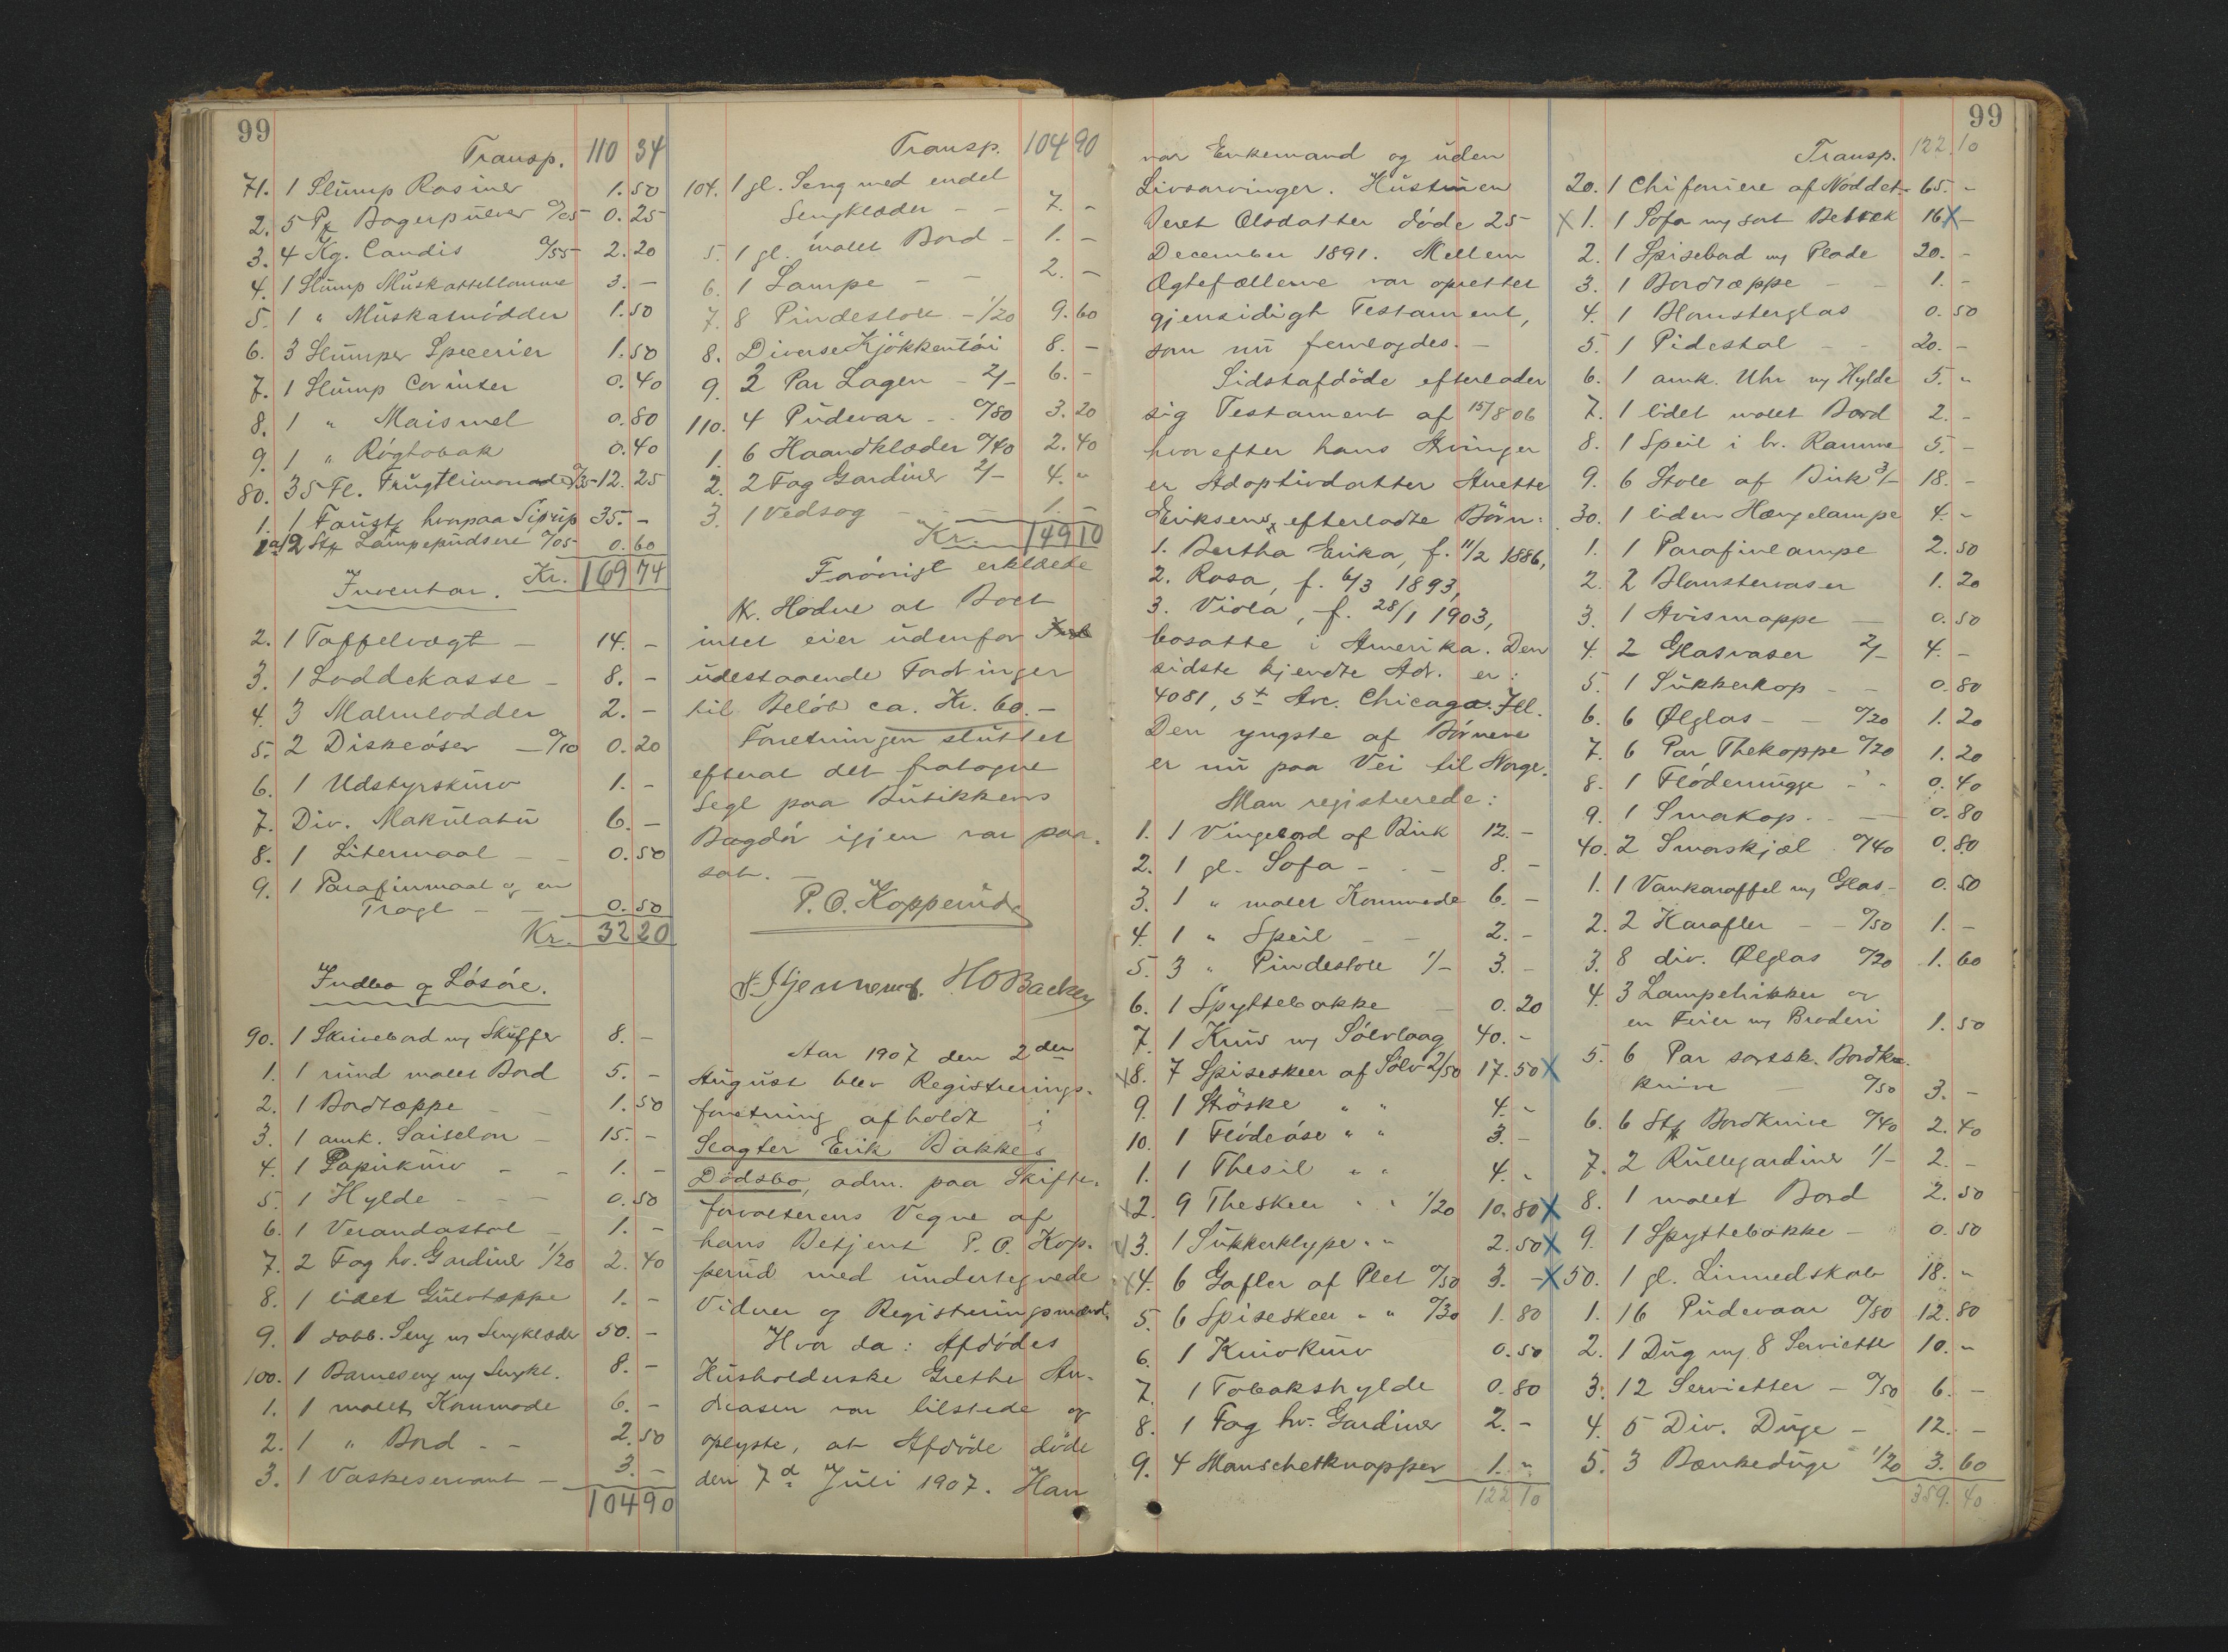 99
Transp. 110 34
71. 1 Slump Rosiner 1.50
2. 5 Pk Bagerpulver 0/05 0.25
3. 4 Kg. Candis 0/55 2.20
4. 1 Slump Muskatteblomme 3.-
5. 1 " Muskatnödder 1.50
6. 3 Slumper Specerier 1.50
7. 1 Slump Corinter 0.40
8. 1 " Maismel 0.80
9. 1 " Røgtobak 0.40
80. 35 Fl. Frugtlimonade 0/35 12.25
1. 1 Fustg hvorpaa Sirup 35.-
1a 12 Stk Lampepudsere 0/05 0.60
Kr. 169 74
Inventar.
2. 1 Taffelvægt - 14.-
3. 1 Loddekasse - 8.-
4. 3 Malmlodder 2.-
5. 2 Diskeöser - 0/10 0.20
6. 1 Udstyrskurv 1.-
7. Div. Makulatur 6.-
8. 1 Litermaal - - 0.50
9. 1 Parafinmaal og en
Tragt - - 0.50
Kr. 32 20
Indbo og Lösöre.
90. 1 Skrivebord m/ Skuffer 8.-
1. 1 rund malet Bord 5.-
2. 1 Bordtæppe - - 1.50
3. 1 amk. Saiselon - 15.-
4. 1 Papirkurv - - 1.-
5. 1 Hylde - - - 0.50
6. 1 Verandastol - 1.-
7. 2 Fag hv. Gardiner 1/20 2.40
8. 1 lidet Gulvtæppe 1.-
9. 1 dobb. Seng m/ Sengklæder 50.-
100. 1 Barneseng m/ Sengkl. 8.-
1. 1 malet Kommode 6.-
2. 1 " Bord - - 2.50
3. 1 Vaskeservant - 3.-
104 90
Transp. 104 90
104. 1 gl. Seng med endel
Sengklæder - - 7.-
5. 1 gl. malet Bord - 1.-
6. 1 Lampe - - 2.-
7. 8 Pindestole - 1/20 9.60
8. Diverse Kjökkentöi 8.-
9. 3 Par Lagen - 2/- 6.-
110. 4 Pudevar - 0/80 3.20
1. 6 Haandklæder 0/40 2.40
2. 2 Fag Gardiner 2/- 4."
3. 1 Vedsag - - - 1.-
Kr. 149 10
Forövrigt erklærte
K. Hodne at Boet
intet eier udenfor
udestaaende Fordringer
til Beløb ca. Kr. 60.-
Forretningen sluttet
efterat det fratagne
Segl paa Butikkens
Bagdör igjen var paa-
sat. -
P. O. Kopperud
H O Backer
Aar 1907 den 2den
August blev Registrerings-
forretning afholdt i
Slagter Erik Bakkes
Dödsbo, adm. paa Skifte-
forvalterens Vegne af
hans Betjent P. O. Kop-
perud med undertegnede
Vidner og Registreringsmænd.
Hvor da: Afdödes
Husholderske Grethe An-
dreasen var tilstede og
oplyste, at Afdöde döde
den 7d Juli 1907. Han
var Enkemand og uden
Livsarvinger. Hustruen
Beret Olsdatter döde 25
December 1891. Mellem
Ægtefællerne var oprettet
gjensidigt Testament,
som nu fremlagdes. -
Sidstafdöde efterlader
sig Testament af 15/8 06
hvorefter hans Arvinger
er Adoptivdatter Anette
Eriksens efterladte Börn:
1. Bertha Erika, f. 11/2 1886,
2. Rosa, f. 6/3 1893,
3. Viola, f. 28/1 1903,
bosatte i Amerika. Den
sidste kjendte Adr. er:
4081, 5t Ave. Chicago. Ill.
Den yngste af Börnene
er nu paa Vei til Norge.
Man registrerede:
1. 1 Vingebord af Birk 12.-
2. 1 gl. Sofa - - - 8.-
3. 1 " malet Kommode 6.-
4. 1 " Speil - - 2.-
5. 3 " Pindestole 1/- 3.-
6. 1 Spyttebakke - 0.20
7. 1 Krus m/ Sölvlaag 40.-
X8. 7 Spiseskeer af Sölv 2/50 17.50 X
9. 1 Ströske " " 4.-
10. 1 Flödeöse " " 3.-
1. 1 Thesil " " 4.-
X2. 9 Theskeer " " 1/20 10.80 X
X3. 1 Sukkerklype " " 2.50 X
X4. 6 Gafler af Plet 0/50 3.- X
5. 6 Spiseskeer " " 0/30 1.80
6. 1 Knivkurv 0.50
7. 1 Tobakshylde 0.80
8. 1 Fag hv. Gardiner 2.-
9. 4 Manschetknapper 1."
122 10
99
Transp. 122.10
20. 1 Chifoniere af Nöddet. 65.-
X 1. 1 Sofa m/ sort Betræk 16 X -
2. 1 Spisebord m/ Plade 20.-
3. 1 Bordtæppe - - 1.-
4. 1 Blomsterglas 0.50
5. 1 Pidestal - - 20.-
6. 1 amk. Uhr m/ Hylde 5."
7. 1 lidet malet Bord 2.-
8. 1 Speil i br. Ramme 5.-
9. 6 Stole af Birk 3/- 18.-
30. 1 liden Hængelampe 4.-
1. 1 Parafinlampe 2.50
2. 2 Blomstervaser 1.20
3. 1 Avismappe - 0.50
4. 2 Glasvaser 2/- 4.-
5. 1 Sukkerkop - - 0.80
6. 6 Ølglas - - 0/20 1.20
7. 6 Par Thekopper 0/20 1.20
8. 1 Flödemugge - - 0.40
9. 1 Smörkop. - - 0.80
40. 2 Smörskjæl 0/40 0.80
1. 1 Vankaraffel m/ Glas - 0.50
2. 2 Karafler - - 0/50 1.-
3. 8 div. Ølglas 0/20 1.60
4. 3 Lampebrikker og
en Feier m/ Broderi 1.50
5. 6 Par sortsk. Bord-
knive - 0/50 3.-
6. 6 Stk Bordknive 0/40 2.40
7. 2 Rullegardiner 1/- 2.-
8. 1 malet Bord 2.50
9. 1 Spyttebakke - 0.50
50. 1 gl. Linnedskab 18."
1. 16 Pudevaar 0/80 12.80
2. 1 Dug m/ 8 Servietter 10."
3. 12 Servietter - 0/50 6.-
4. 5 Div. Duge - 12.-
5. 3 Bænkeduge 1/20 3.60
359.40